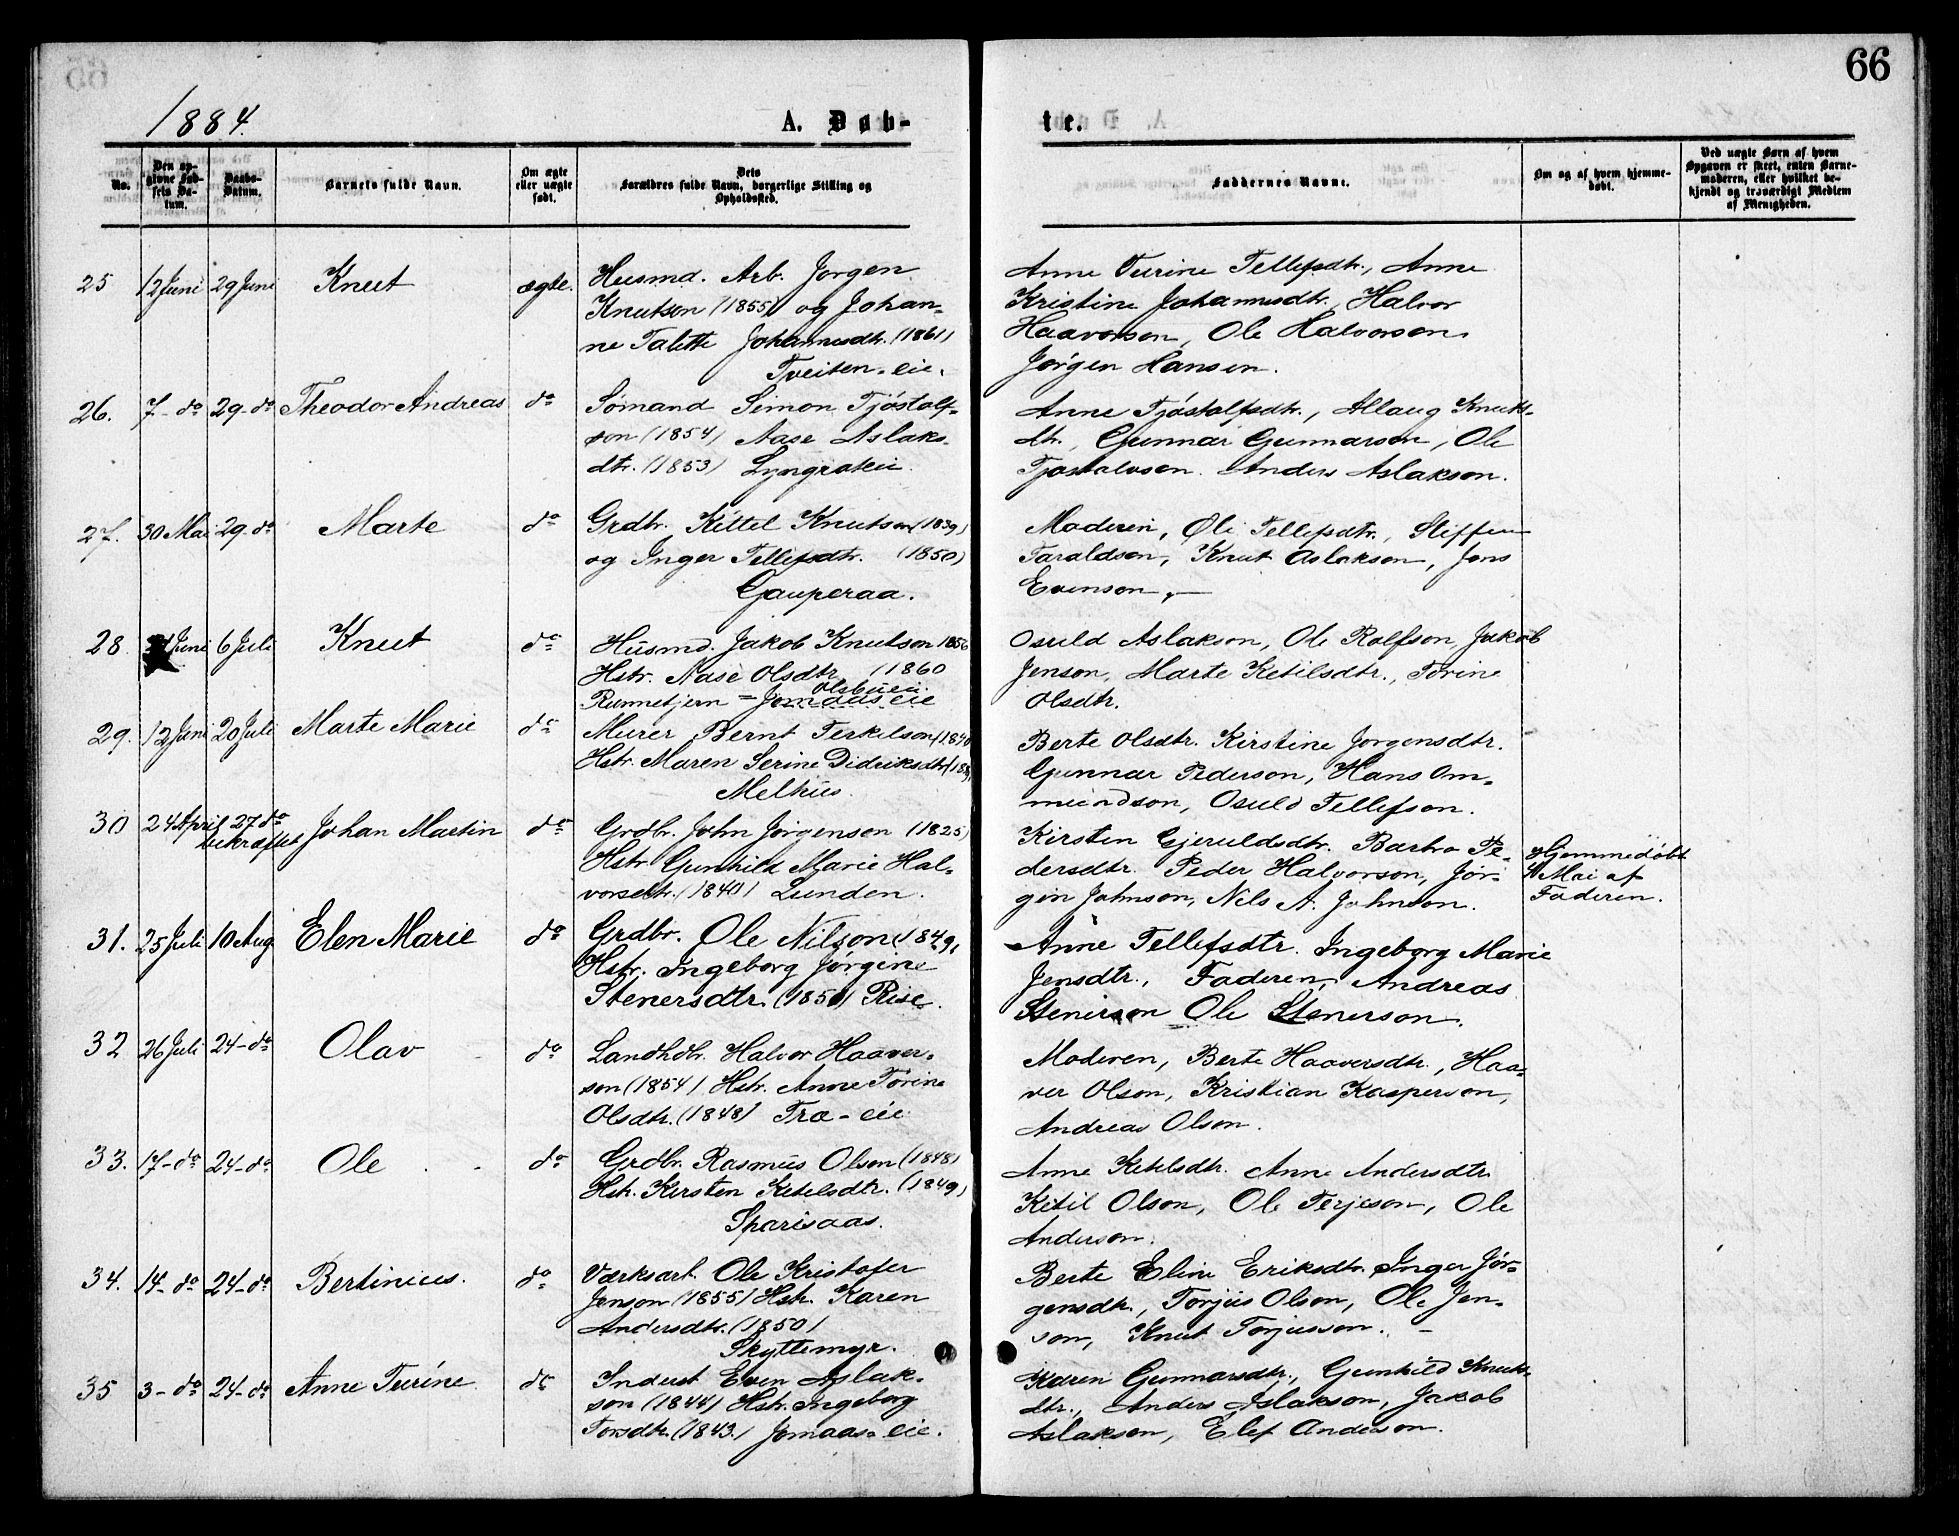 66
1884.
A. Døb-
te.
No.
Den opgivne Fødsels Datum.
Daabs-Datum.
Barnets fulde Navn.
Om ægte eller uægte født.
Dets Forældres fulde Navn, borgerlige Stilling og Opholdssted.
Faddernes Navne.
Om og af hvem hjemmedøbt.
Ved uægte Børn af hvem Opgaven er skeet, enten Barnemoderen, eller hvilket bekjendt og troværdigt Medlem af Menigheden.
25 12 Juni 29 Juni Knut ægte.
Husmd. Arb. Jørgen
Knutson (1855) og Johan-
ne Talette Johannesdtr. (1861)
Tveiten-eie.
Anne Turine Tellefsdtr., Anne
Kristine Johannesdtr., Halvor
Haavorson, Ole Halvorson,
Jørgen Hansen.
26. 7-do 29-do Theodor Andreas do
Sømand Simon Tjøstolf-
son (1854) Aase Aslaks-
dtr. (1853)
Anne Tjøstolfsdtr., Allaug Knuts-
dtr., Gunnar Gunnarson, Ole
Tjøstolvson. Anders Aslakson.
27. 30 Mai 29-do Marte do
Grdbr. Kittel Knutson (1839)
og Inger Tellefsdtr. (1850)
Gauperaa.
Moderen, Oli Tellefsdtr., Steffen
Taraldson, Knut Aslakson, Jens
Evenson.
28. Juni 6 Juli Knut do
Husmd. Jakob Knutson 1856
Hstr. Aase Olsdtr. (1860
Olsbueie.
Runnetjern = Jomaas eie
Osuld Aslakson, Ole Rolfson, Jakob
Jenson, Marte Ketilsdtr., Torine
Olsdtr.
29. 12 Juni 20 Juli Marte Marie do
Murer Bernt Terkelson (1840
Hstr. Maren Serine Didriksdtr.
Melhus.
Berte Olsdtr. Kirstine Jørgensdtr.
Gunnar Pederson, Hans Om-
mundson, Osuld Tellefson.
30 24 April 27 do
bekræftet Johan Martin do
Grdbr. John Jørgenson (1825)
Hstr. Gunhild Marie Hal-
vorsdtr. (1840) Lunden.
Kirsten Gjeruldsdtr. Barbro Pe-
dersdtr. Peder Halvorson, Jør-
gen Johnson, Nils A. Johnson.
Hjemmedöbt
4 Mai af
Faderen.
31. 25 Juli 10 Aug. Elen Marie do
Grdbr. Ole Nilson (1849)
Hstr. Ingeborg Jørgine
Stenersdtr. (1851) Rise.
Anne Tellefsdtr. Ingeborg Marie
Jensdtr., Faderen, Andreas
Stenerson Ole Stenerson.
32 26 Juli 24-do Olav do
Landhdlr. Halvor Haaver-
son (1854) Hstr. Anne Torine
Olsdtr. (1848) Træ-eie
Moderen, Berte Haaversdtr., Haa-
ver Olson, Kristian Kasperson,
Andreas Olson.
33. 17-do 24-do Ole do
Grdbr. Rasmus Olson (1848)
Hstr. Kirsten Ketelsdtr. (1849)
Sparsaas.
Anne Ketelsdtr. Anne Andersdtr.
Ketil Olson, Ole Terjeson, Ole
Anderson.
34. 14-do 24-do Bertinius. do
Værksarb. Ole Kristofer
Jenson (1855) Hstr. Karen
Andersdtr. (1850)
Skyttemyr.
Berte Eline Eriksdtr. Inger Jør-
gensdtr., Torjus Olson, Ole Jen-
son, Knut Torjusson. -
35 3-do 24-do Anne Turine do
Inderst Even Aslak-
son (1844) Hstr. Ingeborg
Torsdtr. (1843.) Jomaas-eie.
Karen Gunnarsdtr., Gunhild Knuts-
dtr., Anders Aslakson, Jakob
Aslakson, Elef Anderson.